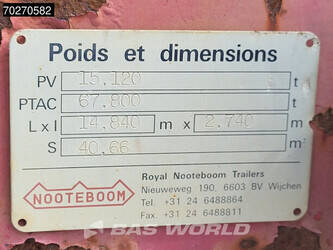 70270582
Poids et dimensions
PV 15.120 t
PTAC 67.800 t
L x l 14.840 m x 2.740 m
S 40.66 m²
NOOTEBOOM
Royal Nooteboom Trailers
Nieuweweg 190, 6603 BV Wijchen
Tel. +31 24 6488864
Fax. +31 24 6488811
BAS WORLD